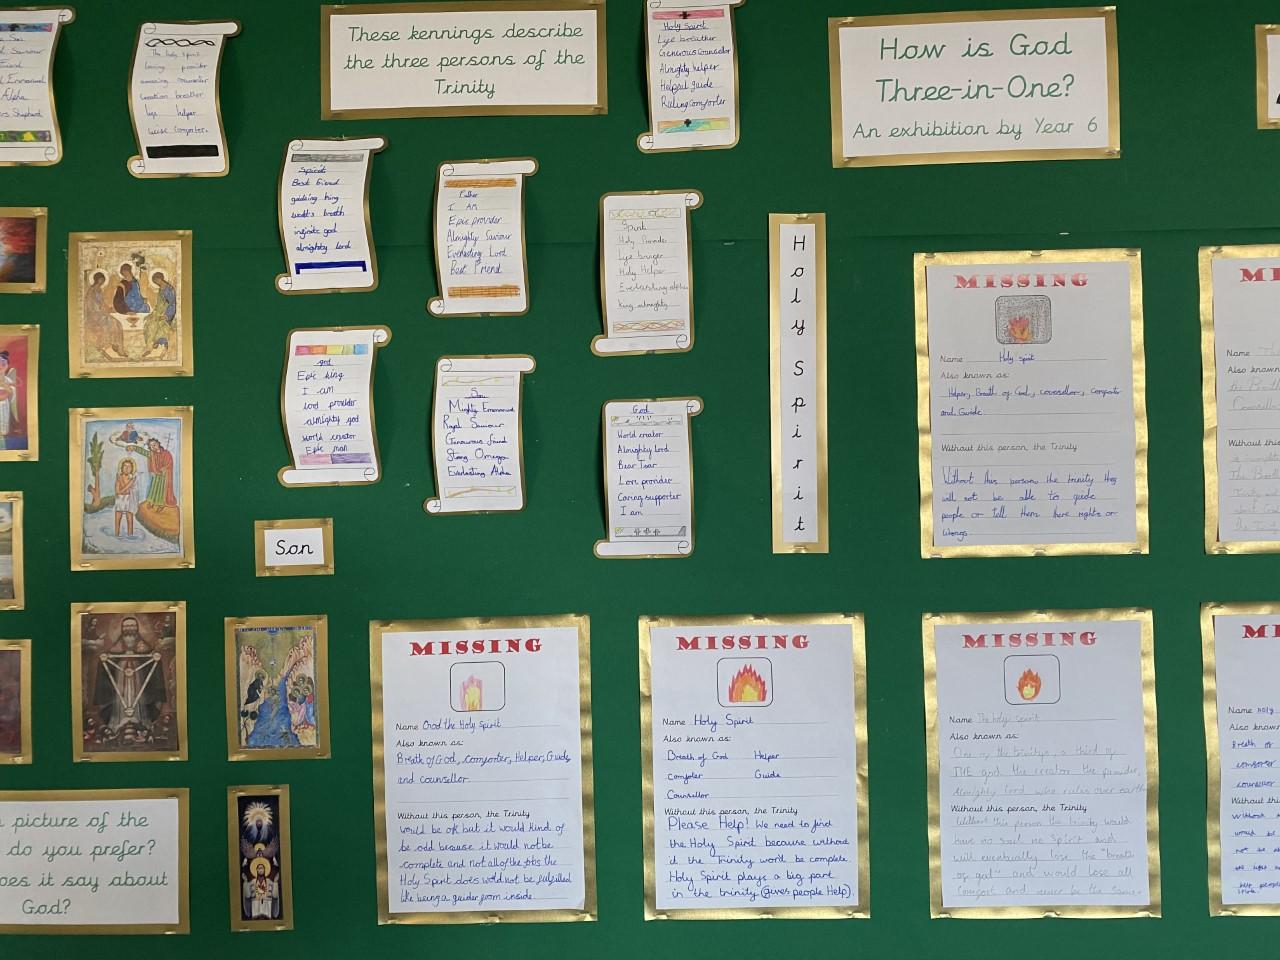 Son
Saviour
Friend
Emmanuel
Alpha
Shepherd
The holy spirit
loving provider
amazing counsetor
Creation breather
helper
wise comforter.
These kennings describe
the three persons of the
Trinity
Holy Spirit
Life breather
Generous Counsellor
Almighty helper
Helpful guide
Ruling comforter
How is God
Three-in-One?
An exhibition by Year 6
Spirit
Best friend
guiding king
world's breath
infinite god
almighty lord
Father
I AM
Epic provider
Almighty Saviour
Everlasting Lord
Best Friend
Spirit
Holy Provider
Life bringer
Holy Helper
Everlasting alpha
King almighty
god
Epic king
I am
lord provider
almighty god
world creator
Epic man
Son
Mighty Emmanuel
Royal Saviour
Generous friend
Strong Omega
Everlasting Alpha
God
World creator
Almighty lord
Bear Tsar
Love provider
Caring supporter
I am
Holy Spirit
Son
MISSING
Name Holy spirit
Also known as:
Helper, Breath of God, counsellor, Comforter
and Guide
Without this person, the Trinity
Without this person the trinity they
will not be able to guide
people or tell them there rights or
wrongs.
MISSING
Name God the Holy Spirit
Also known as:
Breath of God, comforter, Helper, Guide
and counsellor
Without this person, the Trinity
would be ok but it would kind of
be odd because it would not be
complete and not all of the jobs the
Holy Spirit does would not be fulfilled
like being a guider from inside.
MISSING
Name Holy Spirit
Also known as:
Breath of God Helper
comforter Guide
Counsellor
Without this person, the Trinity
Please Help! We need to find
the Holy Spirit because without
it the Trinity won't be complete.
Holy Spirit plays a big part
in the trinity (gives people Help).
MISSING
Name The holy spirit
Also known as:
One of the trinitys, a third of
THE god the creator the provider,
Almighty lord who rules over earth
Without this person, the Trinity
Without this person the trinity would
have no soul no Spirit and
will eventually lose the "breath
of god" and would lose all
Comfort and never be the same.
Name
Also known
the Breath
Counsellor
Without this
Name Holy
Also known
Breath of
comforter
counsellor
Without this
picture of the
do you prefer?
does it say about
God?